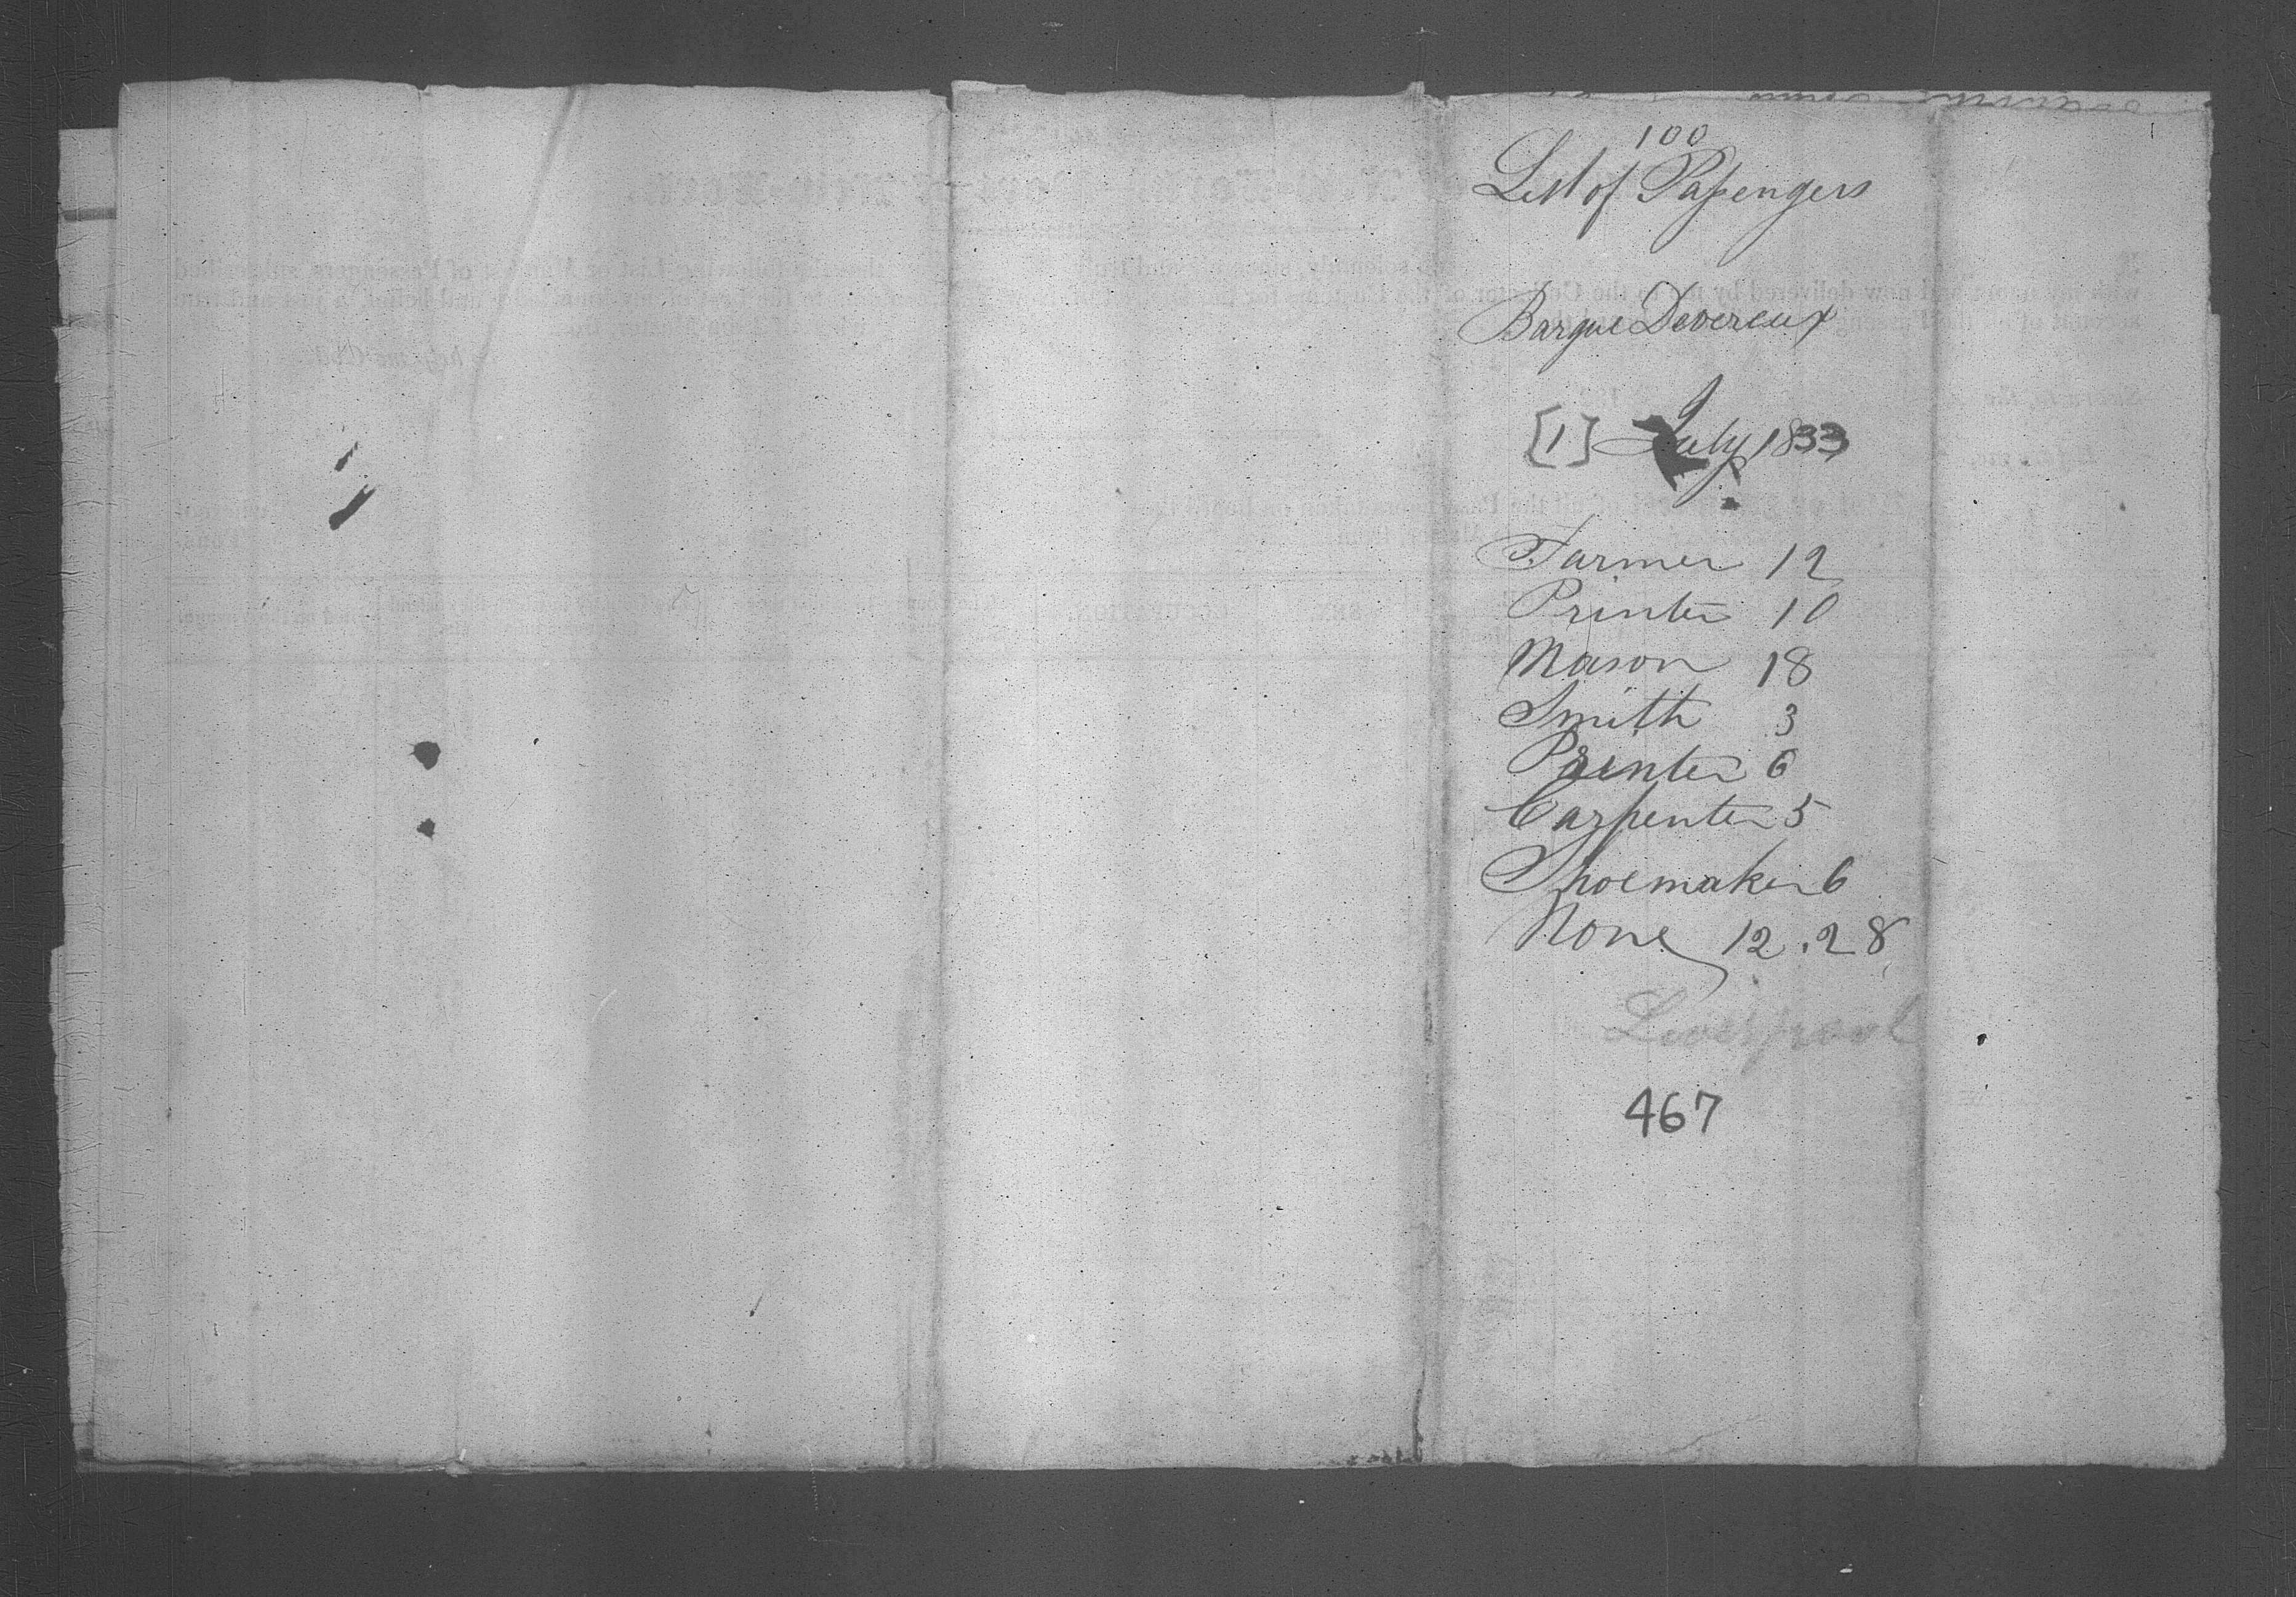 100
List of Passengers
Barque Devereux
[1] July 1833
Farmer 12
Printer 10
Mason 18
Smith 3
Painter 6
Carpenter 5
Shoemaker 6
None 12.28
Liverpool
467